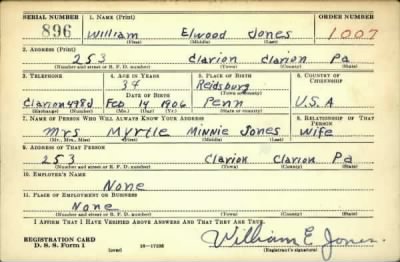 SERIAL NUMBER 1. NAME (Print) ORDER NUMBER
896 William Elwood Jones 1007
(First) (Middle) (Last)
2. ADDRESS (Print)
253 Clarion Clarion Pa
(Number and street or R. F. D. number) (Town) (County) (State)
3. TELEPHONE 4. AGE IN YEARS 5. PLACE OF BIRTH 6. COUNTRY OF CITIZENSHIP
34 Reidsburg
DATE OF BIRTH (Town or county)
Clarion 498J Feb 14 1906 Penn U.S.A
(Exchange) (Number) (Mo.) (Day) (Yr.) (State or country)
7. NAME OF PERSON WHO WILL ALWAYS KNOW YOUR ADDRESS 8. RELATIONSHIP OF THAT PERSON
Mrs Myrtle Minnie Jones Wife
(Mr., Mrs., Miss) (First) (Middle) (Last)
9. ADDRESS OF THAT PERSON
253 Clarion Clarion Pa
(Number and street or R. F. D. number) (Town) (County) (State)
10. EMPLOYER'S NAME
None
11. PLACE OF EMPLOYMENT OR BUSINESS
None
(Number and street or R. F. D. number) (Town) (County) (State)
I AFFIRM THAT I HAVE VERIFIED ABOVE ANSWERS AND THAT THEY ARE TRUE.
REGISTRATION CARD
D. S. S. Form 1 (over) William E Jones